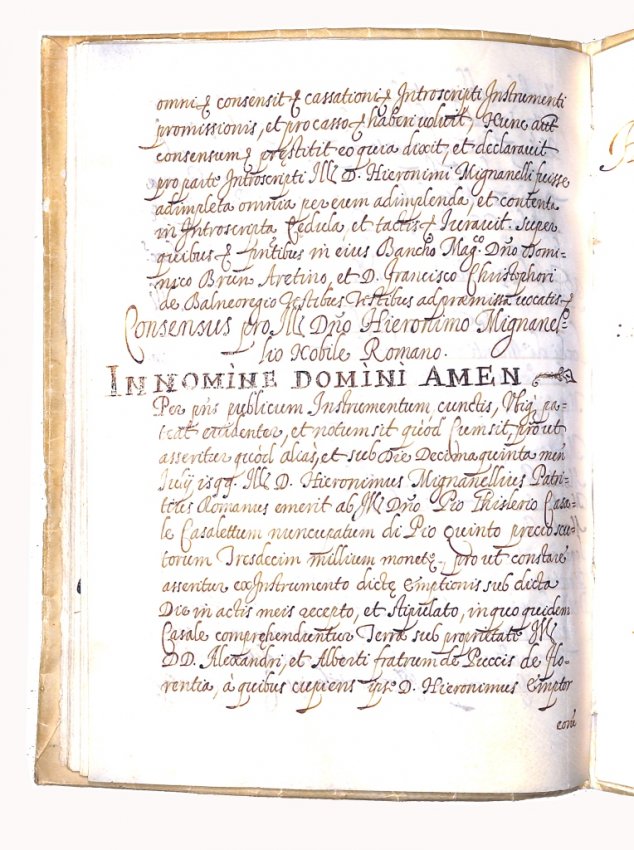 omni et consensit et cassationi et Introscripti Instrumenti
promissionis, et pro casso et haberi voluit, Hunc aūt
consensum et pręstitit eo quia dixit, et declarauit
pro parte Introscripti Ill D. Hieronimi Mignanelli fuisse
adimpleta omnia per eum adimplenda, et contenta
in Introscripta Cedula, et tactis et Iurauit. Super
quibus et p̄ntibus in eius Bancho Mag.co Dn̄o Domi=
nico Bruno Aretino, et D. Francisco Christophori
de Balneoregio Testibus Testibus ad pręmissa uocatis et
Consensus pro Ill Dn̄o Hieronimo Mignanel=
lio Nobile Romano.
IN NOMINE DOMINI AMEN
Per p̄ns publicum Instrumentum cunctis, Vbiq pa=
teat euidenter, et notum sit quód Cum sit, prout
asseritur quód aliàs, et sub Die Decima quinta men
Iulij 1599 Ill D. Hieronimus Mignanellius Patri=
tius Romanus emerit ab Ill Dn̄o Pio Ghislerio Casa=
le Casalettum nuncupatum di Pio quinto precio scu=
torum Tresdecim millium monetę, prout constare
asseritur ex Instrumento dictę emptionis sub dicta
Die in actis meis recepto, et stipulato, in quo quidem
Casale comprehenduntur Terrę sub proprietate Ill
DD. Alexandri, et Alberti fratrum de Puccis de Flo=
rentia, à quibus cupiens ips̄e D. Hieronimus Emptor